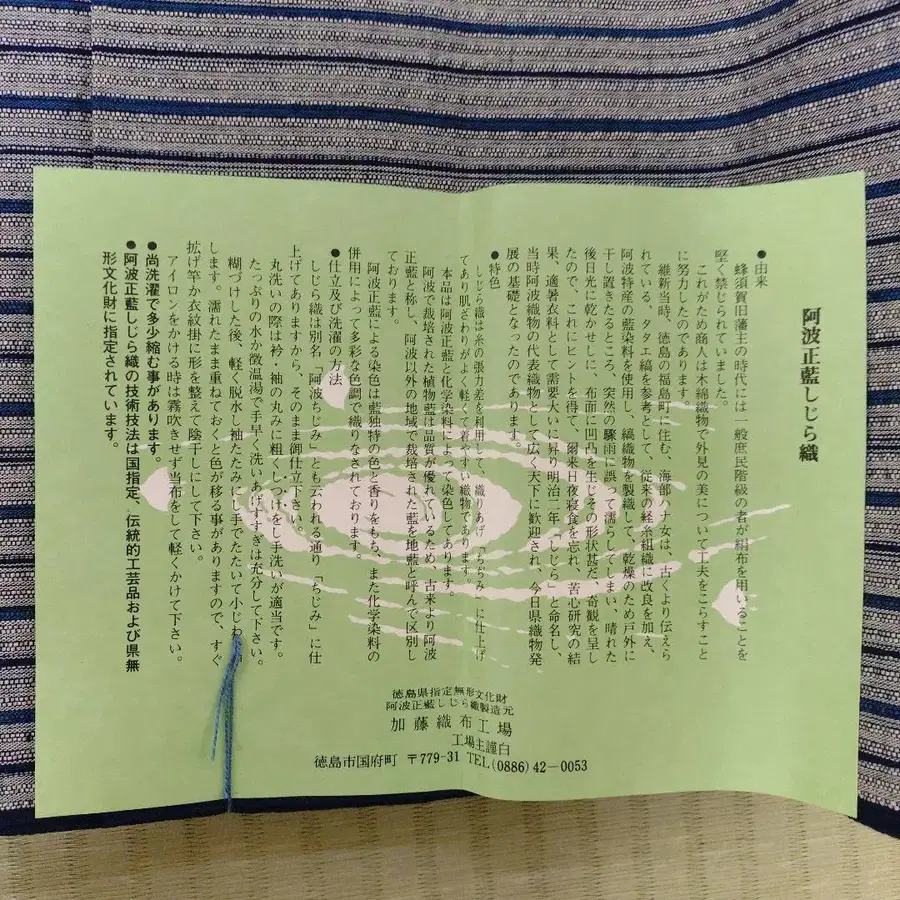 阿波正藍しじら織
●由来
蜂須賀旧藩主の時代には、一般庶民階級の者が絹布を用いることを
堅く禁じられていました。
これがため商人は木綿織物で外見の美について工夫をこらすこと
に努力したのであります。
維新当時、徳島の福島町に住む、海部ハナ女は、古くより伝えら
れている、タタエ縞を参考として、従来の経糸組織に改良を加え、
阿波特産の藍染料を使用し、縞織物を製織して、乾燥のため戸外に
干し置きたるところ、突然の驟雨に誤って濡らしてしまい、晴れた
後日光に乾かせしに、布面に凹凸を生じその形状甚だ、奇観を呈し
たので、これにヒントを得て、爾来日夜寝食を忘れ、苦心研究の結
果、適暑衣料として需要大いに昇り明治二年「しじら」と命名し、
当時阿波織物の代表織物として広く天下に歓迎され、今日県織物発
展の基礎となったのであります。
●特色
しじら織は糸の張力差を利用して、織りあげ「ちぢみ」に仕上げ
てあり肌ざわりがよく軽くて着やすい織物であります。
本品は阿波正藍と化学染料によって染色してあります。
阿波で栽培された植物藍は品質が優れているため、古来より阿波
正藍と称し、阿波以外の地域で栽培された藍を地藍と呼んで区別し
ております。
阿波正藍による染色は藍独特の色と香りをもち、また化学染料の
併用によって多彩な色調で織りなされております。
●仕立及び洗濯の方法
しじら織は別名「阿波ちじみ」とも云われる通り「ちじみ」に仕
上げてありますから、そのまま御仕立下さい。
丸洗いの際は衿・袖の丸みに粗くしつけをし手洗いが適当です。
たっぷりの水か微温湯で手早く洗いあげすすぎは充分して下さい。
糊づけした後、軽く脱水し袖だたみにし手でたたいて小じわ
します。濡れたまま重ねておくと色が移る事がありますので、すぐ
拡げ竿か衣紋掛に形を整えて陰干しにして下さい。
アイロンをかける時は霧吹きせず当布をして軽くかけて下さい。
●尚洗濯で多少縮む事があります。
●阿波正藍しじら織の技術技法は国指定、伝統的工芸品および県無
形文化財に指定されています。
徳島県指定無形文化財
阿波正藍しじら織製造元
加藤織布工場
工場主謹白
徳島市国府町 〒779-31 TEL(0886)42-0053